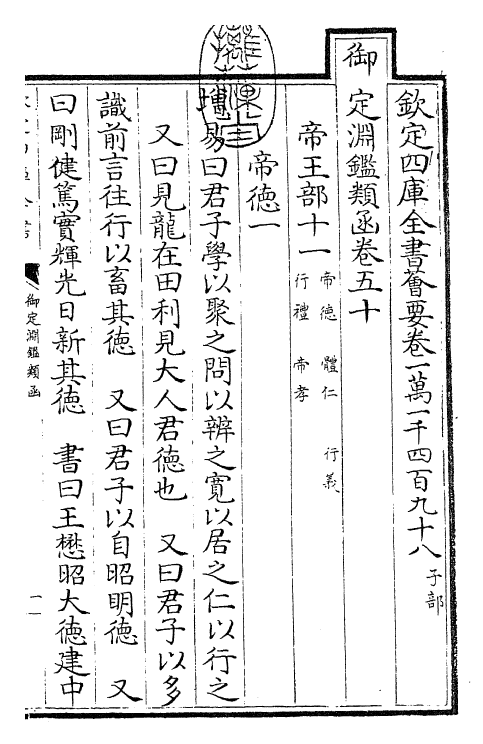 欽定四庫全書薈要卷一萬一千四百九十八 子部
御定淵鑑類函卷五十
帝王部十一 帝德 體仁 行義
行禮 帝孝
帝德一
增易曰君子學以聚之問以辨之寬以居之仁以行之
又曰見龍在田利見大人君德也 又曰君子以多
識前言往行以畜其德 又曰君子以自昭明德 又
曰剛健篤實輝光日新其德 書曰王懋昭大德建中
御定淵鑑類函
一